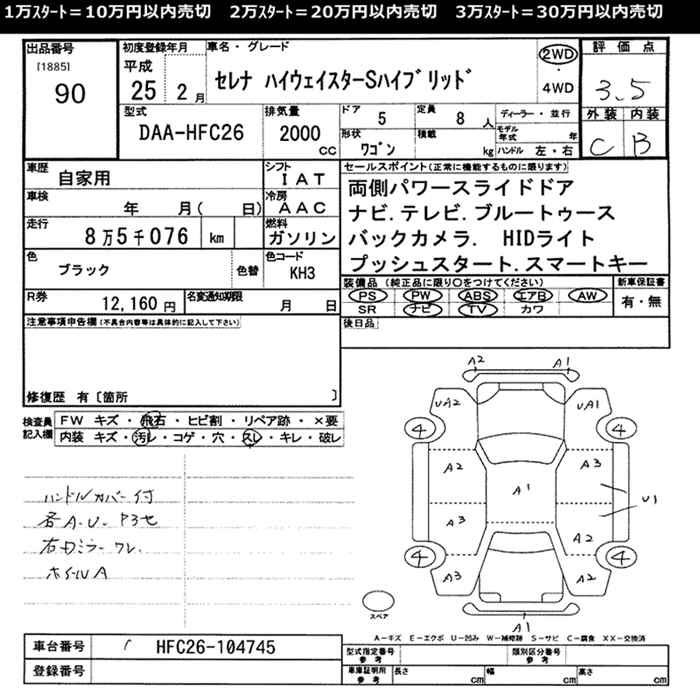 1万ｽﾀｰﾄ＝10万円以内売切　2万ｽﾀｰﾄ＝20万円以内売切　3万ｽﾀｰﾄ＝30万円以内売切
出品番号
[1885]
90
初度登録年月
平成
25年 2月
車名・グレード
セレナ ハイウェイスターSハイブリッド
2WD
・
4WD
評価点
3.5
外装 内装
C B
型式
DAA-HFC26
排気量
2000
CC
ドア
5
定員
8人
ディーラー・並行
形状
ワゴン
積載
kg
モデル年式 年
ハンドル 左・右
車歴
自家用
シフト
IAT
車検
年 月( 日)
冷房
AAC
走行
8万5千076 km
燃料
ガソリン
色
ブラック
色替
色コード
KH3
R券
12,160円
名変通知期限
月 日
セールスポイント(正常に機能するものに限ります)
両側パワースライドドア
ナビ.テレビ.ブルートゥース
バックカメラ. HIDライト
プッシュスタート.スマートキー
装備品 (純正品に限り○をつけてください)
PS PW ABS エアB AW
SR ナビ TV カワ
新車保証書
有・無
後日品
注意事項申告欄(不具合内容等は具体的に記入して下さい)
修復歴 有〔箇所 〕
検査員
記入欄
FW キズ・飛石・ヒビ割・リペア跡・×要
内装 キズ・汚レ・コゲ・穴・スレ・キレ・破レ
ハンドルカバー付
各A-U-
右ドミラーワレ
ホイルA
A2 A1
UA2 UA1
4 4
A2 A1 A3
U1
A3 A2
4 4
A3 A2
A1
スペア
A－キズ E－エクボ U－凹み W－補修跡 S－サビ C－腐食 XX－交換済
車台番号 HFC26-104745
登録番号
型式指定番号
参考
類別区分番号
参考
車庫証明用
参考
長さ cm 幅 cm 高さ cm